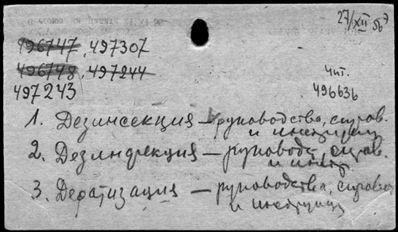 27/XII 56 г
496747, 497307
496748, 497244
497243
Чит.
496636
1. Дезинсекция — руководства, справ.
и инструкции
2. Дезинфекция — руковод., справ.
и инстр.
3. Дератизация — руководства, справоч
и инструкции